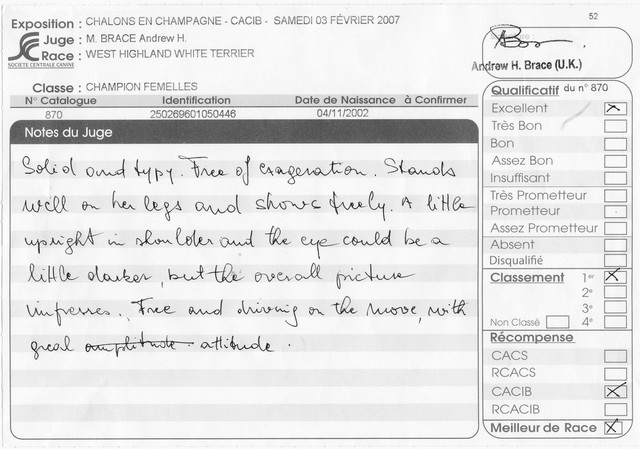 52
Exposition : CHALONS EN CHAMPAGNE - CACIB - SAMEDI 03 FÉVRIER 2007
Juge : M. BRACE Andrew H.
Race : WEST HIGHLAND WHITE TERRIER
SOCIETE CENTRALE CANINE
Andrew H. Brace (U.K.)
Classe : CHAMPION FEMELLES
N° Catalogue Identification Date de Naissance à Confirmer
870 250269601050446 04/11/2002
Notes du Juge
Solid and typy. Free of exageration. Stands
well on her legs and shows freely. A little
upright in shoulder and the eye could be a
little darker, but the overall picture
impresses. Free and driving on the move, with
great amplitude. attitude.
Qualificatif du n° 870
Excellent X
Très Bon
Bon
Assez Bon
Insuffisant
Très Prometteur
Prometteur
Assez Prometteur
Absent
Disqualifié
Classement 1er X
2e
3e
Non Classé 4e
Récompense
CACS
RCACS
CACIB X
RCACIB
Meilleur de Race X